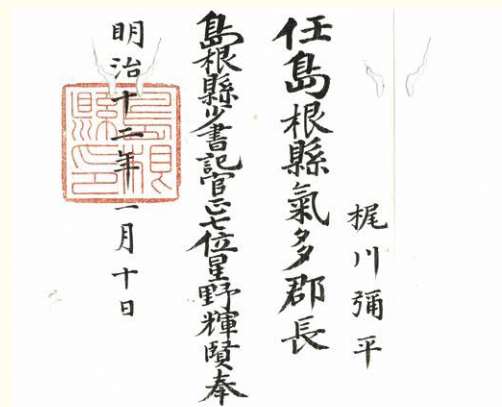 梶川彌平
任島根縣氣多郡長
島根縣少書記官正七位星野輝賢奉
明治十二年一月十日
島根縣印